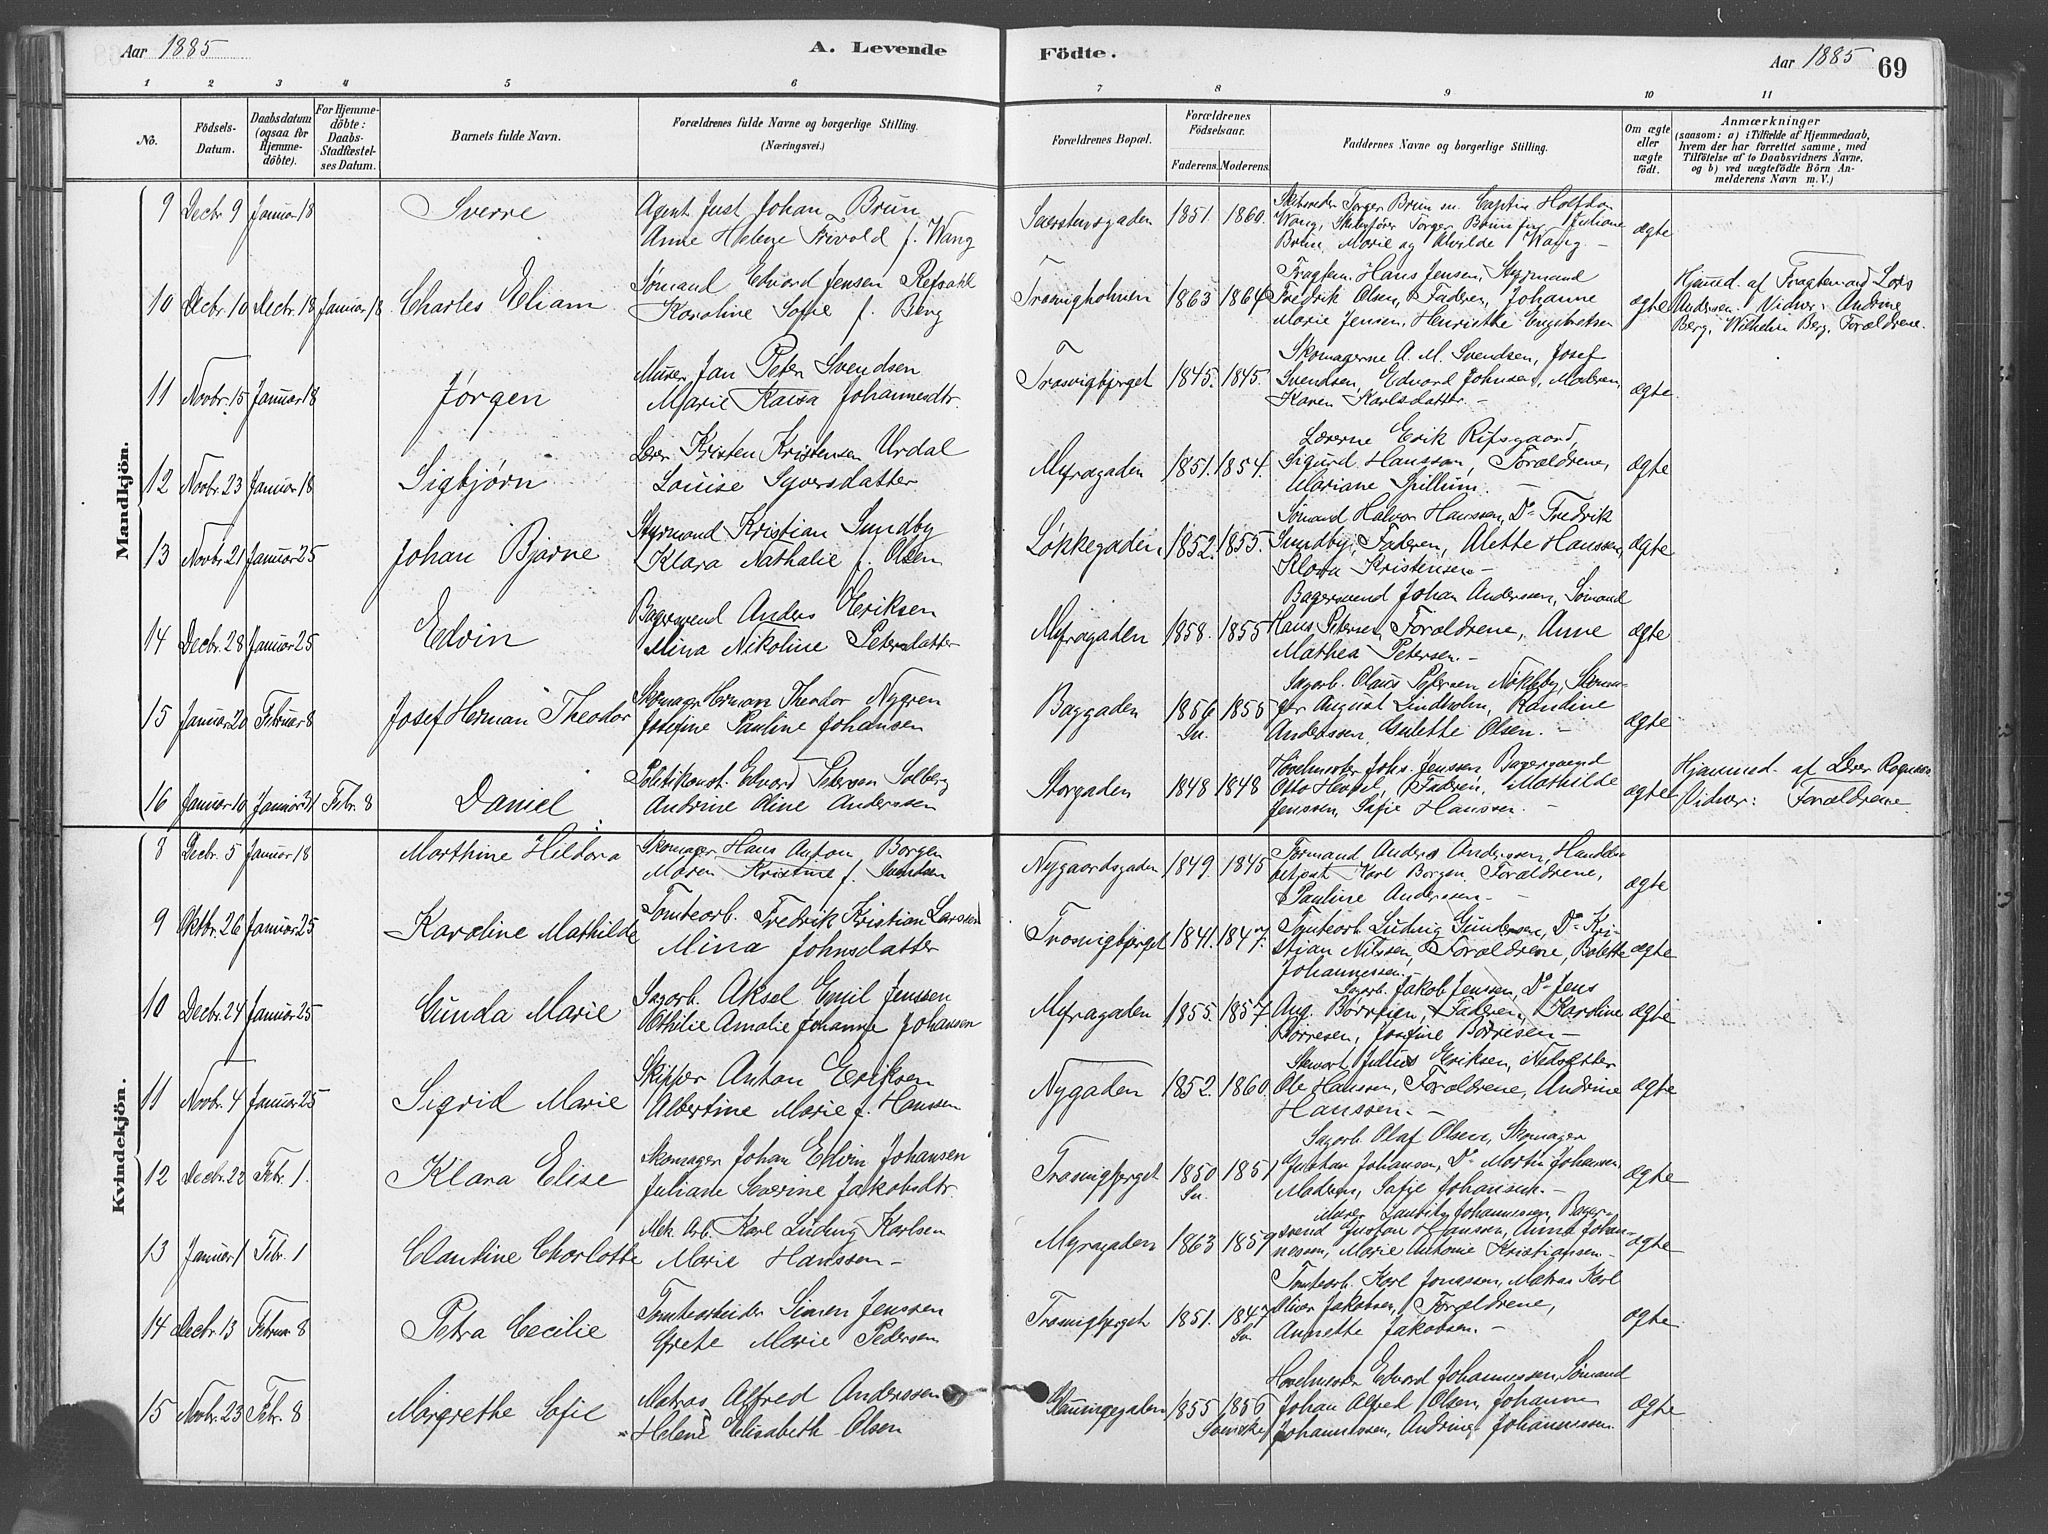 Aar 1885
A. Levende
Födte.
Aar 1885
69
1 2 3 4 5 6 7 8 9 10 11
No.
Födsels-Datum.
Daabsdatum (ogsaa for Hjemmedöbte).
For Hjemmedöbte: Daabs-Stadfæstelses Datum.
Barnets fulde Navn.
Forældrenes fulde Navne og borgerlige Stilling.
(Næringsvei.)
Forældrenes Bopæl.
Forældrenes Födselsaar.
Faderens. Moderens.
Faddernes Navne og borgerlige Stilling.
Om ægte eller uægte födt.
Anmærkninger
(saasom: a) i Tilfælde af Hjemmedaab,
hvem der har forrettet samme, med
Tilföielse af to Daabsvidners Navne,
og b) ved uægtefödte Börn Anmelderens Navn m. V.)
Mandkjön.
9 Decbr 9 Januar 18 Sverre
Agent Just Johan Brun
Anne Helene Trivold f. Wang
1851. 1860.
Brun, Marie og Wang.
ægte
10 Decbr. 10 Decbr. 18 Januar 18 Charles Eliam
Sömand Edvard Jensen Refsahl
Karoline Sofie f. Berg
Trosvigholmen 1863 1864
Fragtem. Hans Jensen, Styrmand
Fredrik Olsen, Faderen, Johanne
Marie Jensen, Henriette Engebretsen
ægte
Hjemmed. af Fragtemand Lars
Andersen. Vidner: Andrine
Berg, Wilhelm Berg, Forældrene.
11 Novbr. 15 Januar 18 Jörgen
Murer Jan Peter Svendsen
Marie Kaisa Johannesdtr.
Trosvigbjerget 1845. 1845.
Skomagerne A. M. Svendsen, Josef
Svendsen, Edvard Johnsen, Moderen,
Karen Karlsdatter.
ægte
12 Novbr. 23 Januar 18 Sigbjørn
Lærer Kristen Kristensen Urdal
Louise Syversdatter
Myragaden 1851. 1854.
Lærerne Erik Rifsgaard,
Sigurd Hansson, Forældrene,
Mariane Spillum.
ægte
13 Novbr. 21 Januar 25 Johan Bjarne
Styrmand Kristian Sundby
Klara Nathalie f. Olsen
Løkkegaden 1852. 1855.
Sömand Halvor Hanssen, Do Fredrik
Sundby, Faderen, Alette Hanssen,
Klara Kristensen.
ægte
14 Decbr. 28 Januar 25 Edvin
Bagersvend Anders Eriksen
Mina Nikoline Petersdatter
Myragaden 1858. 1855
Bagersvend Johan Anderssen, Sömand
Hans Petersen, Forældrene, Anne
Mathea Petersen.
ægte
15 Januar 20 Februar 8 Josef Herman Theodor
Skomager Herman Theodor Nygren
Josefine Pauline Johansen
Baggaden 1856 1856
Sv.
Sagarb. Olaus Petersen Nøkleby,
August Lindholm, Randine
Anderssen, Gulette Olsen.
ægte
16 Januar 10 Januar 31 Febr. 8 Daniel
Politikonst. Edvard Petersen Solberg
Andrine Oline Anderssen
Storgaden 1848 1848
Høvelmester Johs. Jenssen, Bagersvend
Otto Faderen, Mathilde
Jenssen, Sofie Hanssen.
ægte
Hjemmed. af Lærer
Vidner: Forældrene
Kvindekjön.
8 Decbr. 5 Januar 18 Marthine Hildora
Skomager Hans Anton Borgen
Maren Kristine f. Svendsen
Nygaardsgaden 1849. 1845
Anders Anderssen,
Karl Borgen, Forældrene,
Pauline Anderssen.
ægte
9 Oktbr. 26 Januar 25 Karoline Mathilde
Tomtearb. Fredrik Kristian Larssen
Mina Johnsdatter
Trosvigbjerget 1841. 1847.
Tomtearb. Ludvig Gundersen, Do Kristian
Nilssen, Forældrene, Bolette
Johannessen.
ægte
10 Decbr. 24 Januar 25 Gunda Marie
Sagarb. Aksel Emil Jenssen
Othilie Amalie Johanne Johansen
Myragaden 1855. 1857.
Sagarb. Jakob Jenssen, Do Jens
Aug. Börresen, Faderen, Karoline
Börresen, Josefine Börresen
ægte
11 Novbr. 4 Januar 25 Sigrid Marie
Skipper Anton Eriksen
Albertine Marie f. Hanssen
Nygaden 1852. 1860.
Stewart Julius Eriksen,
Ole Hanssen, Forældrene, Andrine
Hanssen.
ægte
12 Decbr. 22 Febr. 1. Klara Elise
Skomager Johan Edvin Johansen
Juliane Severine Jakobsdtr.
Trosvigbjerget 1850 1851
Sv.
Sagarb. Olaf Olsen, Skomager
Gustav Johansen, Do Martin Johansen,
Moderen, Sofie Johansen.
ægte
13 Januar 1 Febr. 1 Claudine Charlotte
Mek. Arb. Karl Ludvig Karlsen
Marie Hanssen
Myragaden 1863 1859
Murer Lauritz Johannessen, Bagersvend
Gustav Hanssen, Anna Johannessen,
Marie Antonie Kristiansen.
ægte
14 Decbr. 13 Februar 8 Petra Cecilie
Tomtearbeider Simen Jenssen
Grete Marie Pedersen
Trosvigbjerget 1851. 1847
Sv.
Tomtearb. Karl Jonassen, Matros Karl
Oliver Jakobsen, Forældrene,
Annette Jakobsen.
ægte
15 Novbr. 23 Febr. 8 Margrethe Sofie
Matros Alfred Anderssen
Helene Elisabeth Olsen
1855 1856
Svenske
Høvelmester Edvard Johannessen, Sömand
Johan Alfred Olsen, Johanne
Johannessen, Andrine Johannessen
ægte